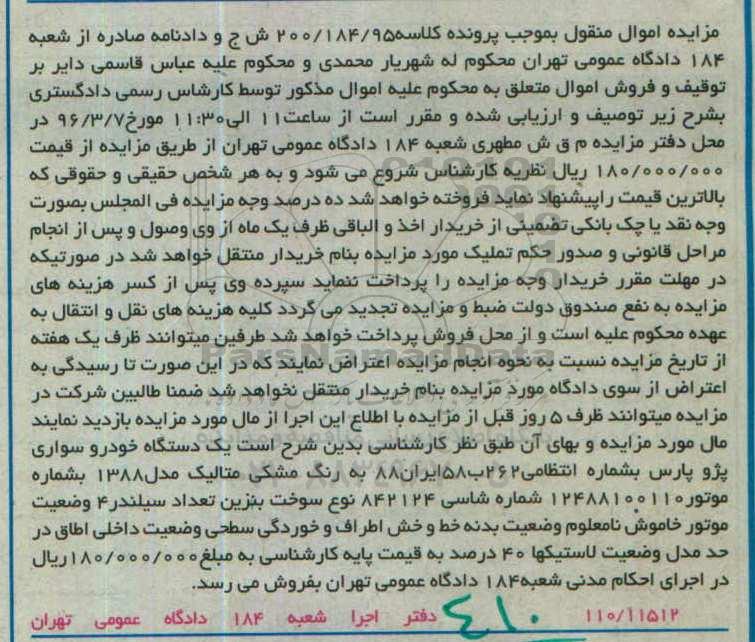 مزایده اموال منقول بموجب پرونده کلاسه۲۰۰/۱۸۴/۹۵ ش ج و دادنامه صادره از شعبه
۱۸۴ دادگاه عمومی تهران محکوم له شهریار محمدی و محکوم علیه عباس قاسمی دایر بر
توقیف و فروش اموال متعلق به محکوم علیه اموال مذکور توسط کارشناس رسمی دادگستری
بشرح زیر توصیف و ارزیابی شده و مقرر است از ساعت۱۱ الی۱۱:۳۰ مورخ۹۶/۳/۷ در
محل دفتر مزایده م ق ش مطهری شعبه ۱۸۴ دادگاه عمومی تهران از طریق مزایده از قیمت
۱۸۰/۰۰۰/۰۰۰ ریال نظریه کارشناس شروع می شود و به هر شخص حقیقی و حقوقی که
بالاترین قیمت راپیشنهاد نماید فروخته خواهد شد ده درصد وجه مزایده فی المجلس بصورت
وجه نقد یا چک بانکی تضمینی از خریدار اخذ و الباقی ظرف یک ماه از وی وصول و پس از انجام
مراحل قانونی و صدور حکم تملیک مورد مزایده بنام خریدار منتقل خواهد شد در صورتیکه
در مهلت مقرر خریدار وجه مزایده را پرداخت ننماید سپرده وی پس از کسر هزینه های
مزایده به نفع صندوق دولت ضبط و مزایده تجدید می گردد کلیه هزینه های نقل و انتقال به
عهده محکوم علیه است و از محل فروش پرداخت خواهد شد طرفین میتوانند ظرف یک هفته
از تاریخ مزایده نسبت به نحوه انجام مزایده اعتراض نمایند که در این صورت تا رسیدگی به
اعتراض از سوی دادگاه مورد مزایده بنام خریدار منتقل نخواهد شد ضمنا طالبین شرکت در
مزایده میتوانند ظرف ۵ روز قبل از مزایده با اطلاع این اجرا از مال مورد مزایده بازدید نمایند
مال مورد مزایده و بهای آن طبق نظر کارشناسی بدین شرح است یک دستگاه خودرو سواری
پژو پارس بشماره انتظامی۲۶۲ب۵۸ایران۸۸ به رنگ مشکی متالیک مدل۱۳۸۸ بشماره
موتور۱۲۴۸۸۱۰۰۱۱۰ شماره شاسی ۸۴۲۱۲۴ نوع سوخت بنزین تعداد سیلندر۴ وضعیت
موتور خاموش نامعلوم وضعیت بدنه خط و خش اطراف و خوردگی سطحی وضعیت داخلی اطاق در
حد مدل وضعیت لاستیکها ۴۰ درصد به قیمت پایه کارشناسی به مبلغ۱۸۰/۰۰۰/۰۰۰ریال
در اجرای احکام مدنی شعبه۱۸۴ دادگاه عمومی تهران بفروش می رسد.
۱۱۰/۱۱۵۱۲ دفتر اجرا شعبه ۱۸۴ دادگاه عمومی تهران
۴۱۰
ParsNamadData